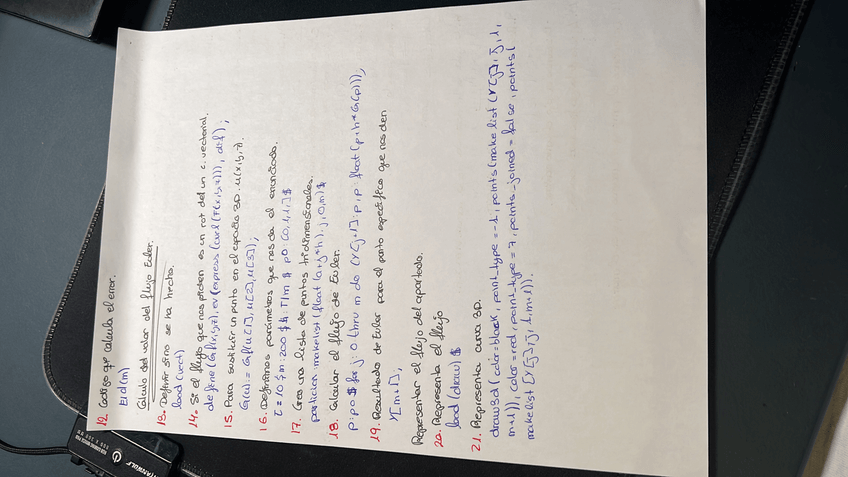 12. Código que calcula el error.
E1d(m)
Cálculo del valor del flujo Euler.
13. Definir si no se ha hecho.
load(vect)
14. Si el flujo que nos piden es un rot del un c. vectorial.
define(Gf(x,y,z),ev(express(curl(F(x,y,z))),diff);
15. Para sustituir un punto en el espacio 3D. u(x,y,z).
G(u):=Gf(u[1],u[2],u[3]);
16. Definimos parámetros que nos da el enunciado.
T:10$ m:200$ h:T/m$ p0:[0,1,1]$
17. Crea una lista de puntos tridimensionales.
particion:makelist(float(a+j*h),j,0,m)$
18. Calcular el flujo de Euler.
p:p0$ for j:0 thru m do (Y[j+1]:p,p float(p+h*G(p)));
19. Resultado de Euler para el punto específico que nos den
Y[m+1];
Representar el flujo del apartado.
20. Representa el flujo
load(draw)$
21. Representa curva 3D.
draw3d(color=black,point_type=-1,points(makelist(Y[j],j,1,
m+1)),color=red,point_type=7,points_joined=false,points(
makelist[Y[j],j,1,m+1)).